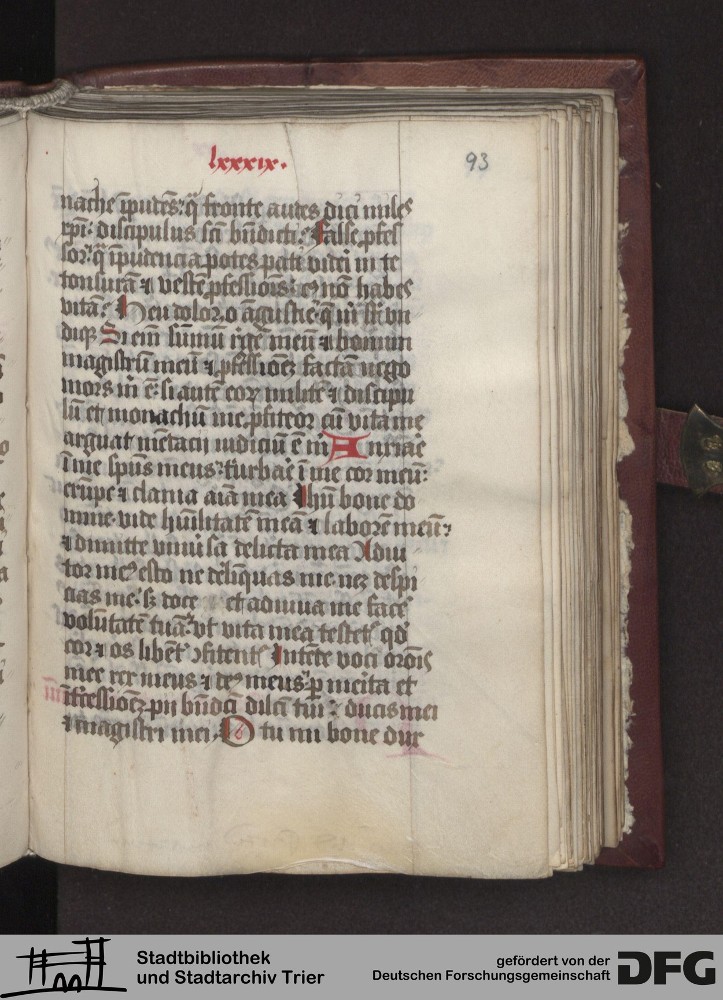 lxxxix.
93
nache īpudēs: q̄ fronte audes dici miles
xpi: discipulus sc̄i bn̄dicti: false ꝓfes
sor: q̄ īpudencia potes pati videri in te
tonsurā ⁊ vestē ꝓfessiōis: et nō habes
vitā: Heu dolor, o āgustie q̄ m̄ st̄ vn
diqꝫ Si em̄ sūmū rēgē meū ⁊ bonum
magistrū meū ⁊ ꝓfessionē factā nego
mors m̄ ē: si autē eoꝝ militē ⁊ discipu
lū et monachū me ꝓfiteor cū vita me
arguat mēdacij iudiciū ē m̄ Anxiat
ī me spūs meus: turbat̄ ī me cor meū:
erūpe ⁊ clama aīa mea Ihū bone do
mine vide hūilitatē meā ⁊ laborē meū:
⁊ dimitte vniūsa delicta mea Adiu
tor me⁹ esto ne delīquas me neqꝫ despi
cias me: sꝫ doce et adiuua me face
volūtatē tuā: vt vita mea testet̄ qd̄
cor ⁊ os libēt̄ ꝯfitent̄ Intēde voci orōis
mee rex meus ⁊ de⁹ meus: ꝑ merita et
ītercessionē pij bn̄dicti dilc̄i tui: ducis mei
⁊ magistri mei. Et tu mi bone dux
Stadtbibliothek
und Stadtarchiv Trier
gefördert von der
Deutschen Forschungsgemeinschaft
DFG